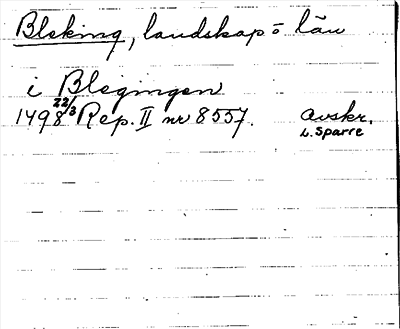 Bleking, landskap ō län
i Blegingen
1498 22/3 Rep. II nr 8557. Avskr.
L. Sparre